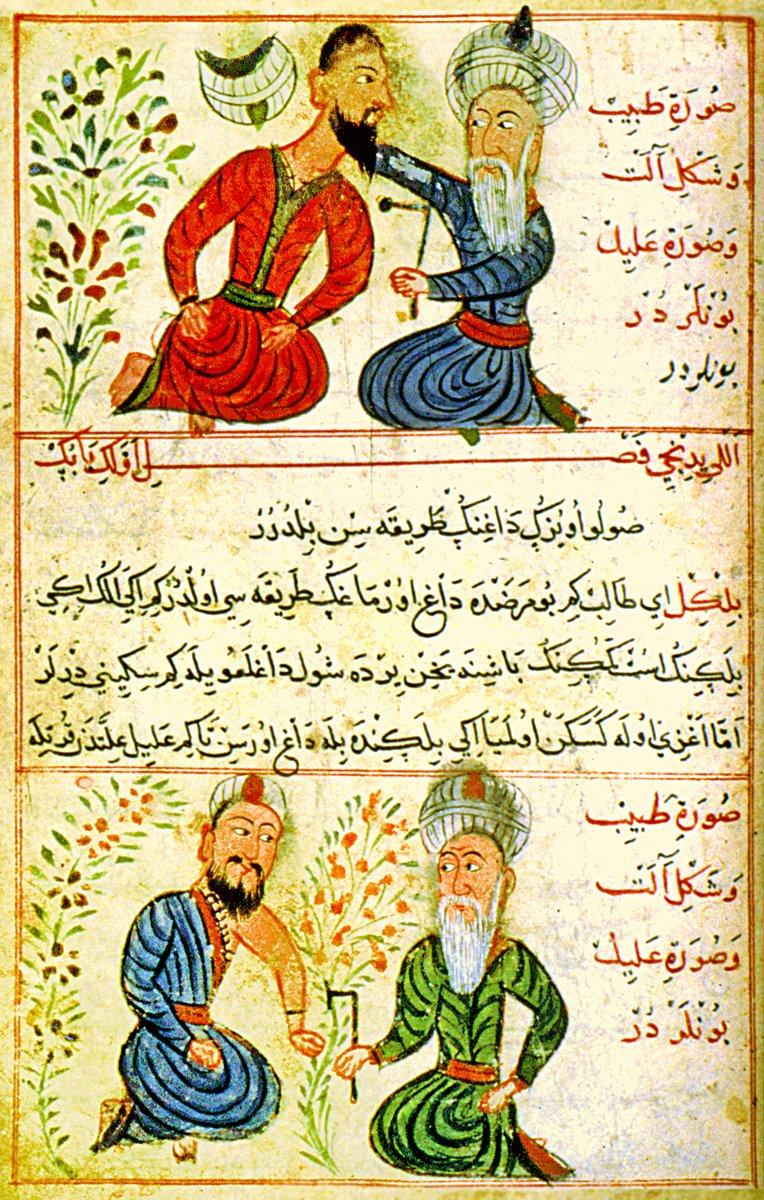 صُورَةِ طَبِيبْ
وَشَكْلِ آلَتْ
وَصُورَةِ عَلِيلْ
بُونْلَرْ دُرْ
بونلر در
اَللي يدِنجي فَصْل اَوَّلكي بَابِڭ
صُولو اُويُزڭ دَاغِنڭ طَرِيقَه سِن بِلْدُرُرْ
بِلْكِلْ اي طَالِبْ كِم بُو مَرَضْدَه دَاغ اوُرْمَاغڭ طَرِيقَه سِي اوُلْدُرْ كِم اكي الڭ اكي
بِلَكِنڭ اسْت كَمُكِنڭ بَاشِنَه يَخِنْ يِرْدَه شُول دَاغْلَغُويِلَه كِم سِكِيني دِرلَرْ
اَمَّا اَغْزِي اوُلَه كَسْكِنْ اوُلميَا اكي بِلَكِنْدَه بِلَه دَاغ اوُرَسِنْ تَا كِم عَلِيل عِلَّتدَن قُرتِلَه
صُورَةِ طَبِيبْ
وَشَكْلِ آلَتْ
وَصُورَةِ عَلِيلْ
بُونْلَرْ دُرْ